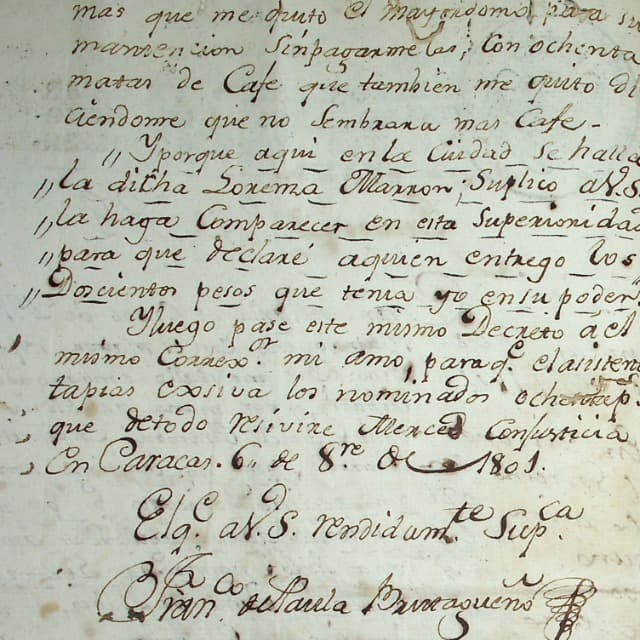 mas que me quito el mayordomo para su
manencion sinpagarmelas, con ochenta
matas de Cafe que tambien me quito di
ciendome que no sembrara mas Cafe-
,, Yporque aqui en la Ciudad se halla
,, la dicha Lorema Marron, Suplico aV.S
,, la haga Comparecer en esta Superioridad
,, para que declare aquien entrego los
,, Dozcientos pesos que tenia yo ensu poder
Yluego pase este mismo Decreto a el
mismo Correxor mi amo, para qe el asistente
tapias exsiva los nominados ochenta p.
que detodo resivire Merced Conjusticia
En Caracas. 6,, de 8re de 1801.
Elqe aV.S. rendidamte Supca
Franco de Paula Burtagueño